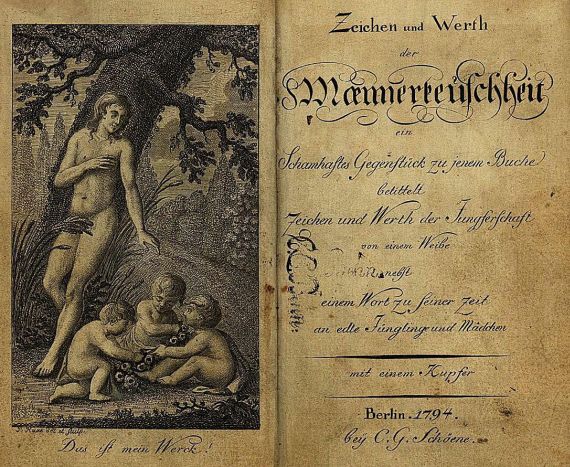 Das ist mein Werck!
Zeichen und Werth
der
Mœnnerkeuschheit
ein
Schamhaftes Gegenstück zu jenem Buche
betittelt
Zeichen und Werth der Jungferschaft
von einem Weibe
nebst
einem Wort zu seiner Zeit
an edle Jünglinge und Mädchen
mit einem Kupfer
Berlin. 1794.
beÿ C. G. Schöene.